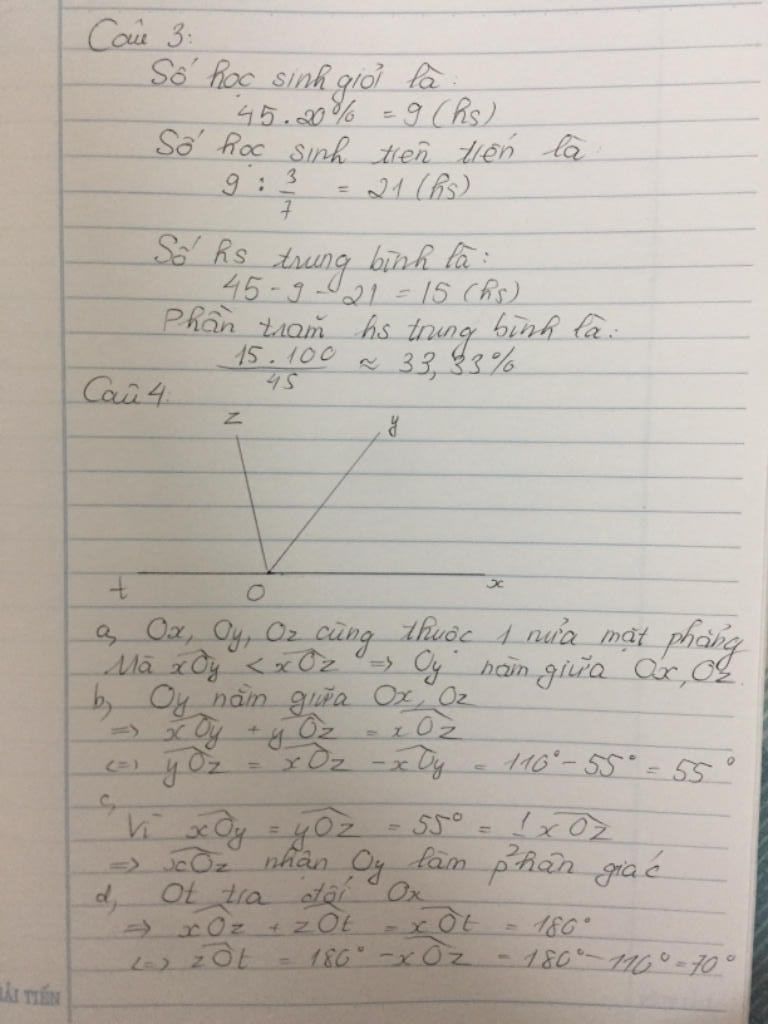 Câu 3:
Số học sinh giỏi là:
45 . 20% = 9 (hs)
Số học sinh tiên tiến là
9 : 3/7 = 21 (hs)
Số hs trung bình là:
45 - 9 - 21 = 15 (hs)
Phần trăm hs trung bình là:
15 . 100 / 45 ≈ 33,33%
Câu 4:
z y
t O x
a, Ox, Oy, Oz cùng thuộc 1 nửa mặt phẳng
Mà xOy < xOz => Oy nằm giữa Ox, Oz.
b, Oy nằm giữa Ox, Oz
=> xOy + yOz = xOz
<=> yOz = xOz - xOy = 110° - 55° = 55°
c,
Vì xOy = yOz = 55° = 1/2 xOz
=> xOz nhận Oy làm phân giác
d, Ot tia đối Ox
=> xOz + zOt = xOt = 180°
<=> zOt = 180° - xOz = 180° - 110° = 70°
ẢI TIẾN